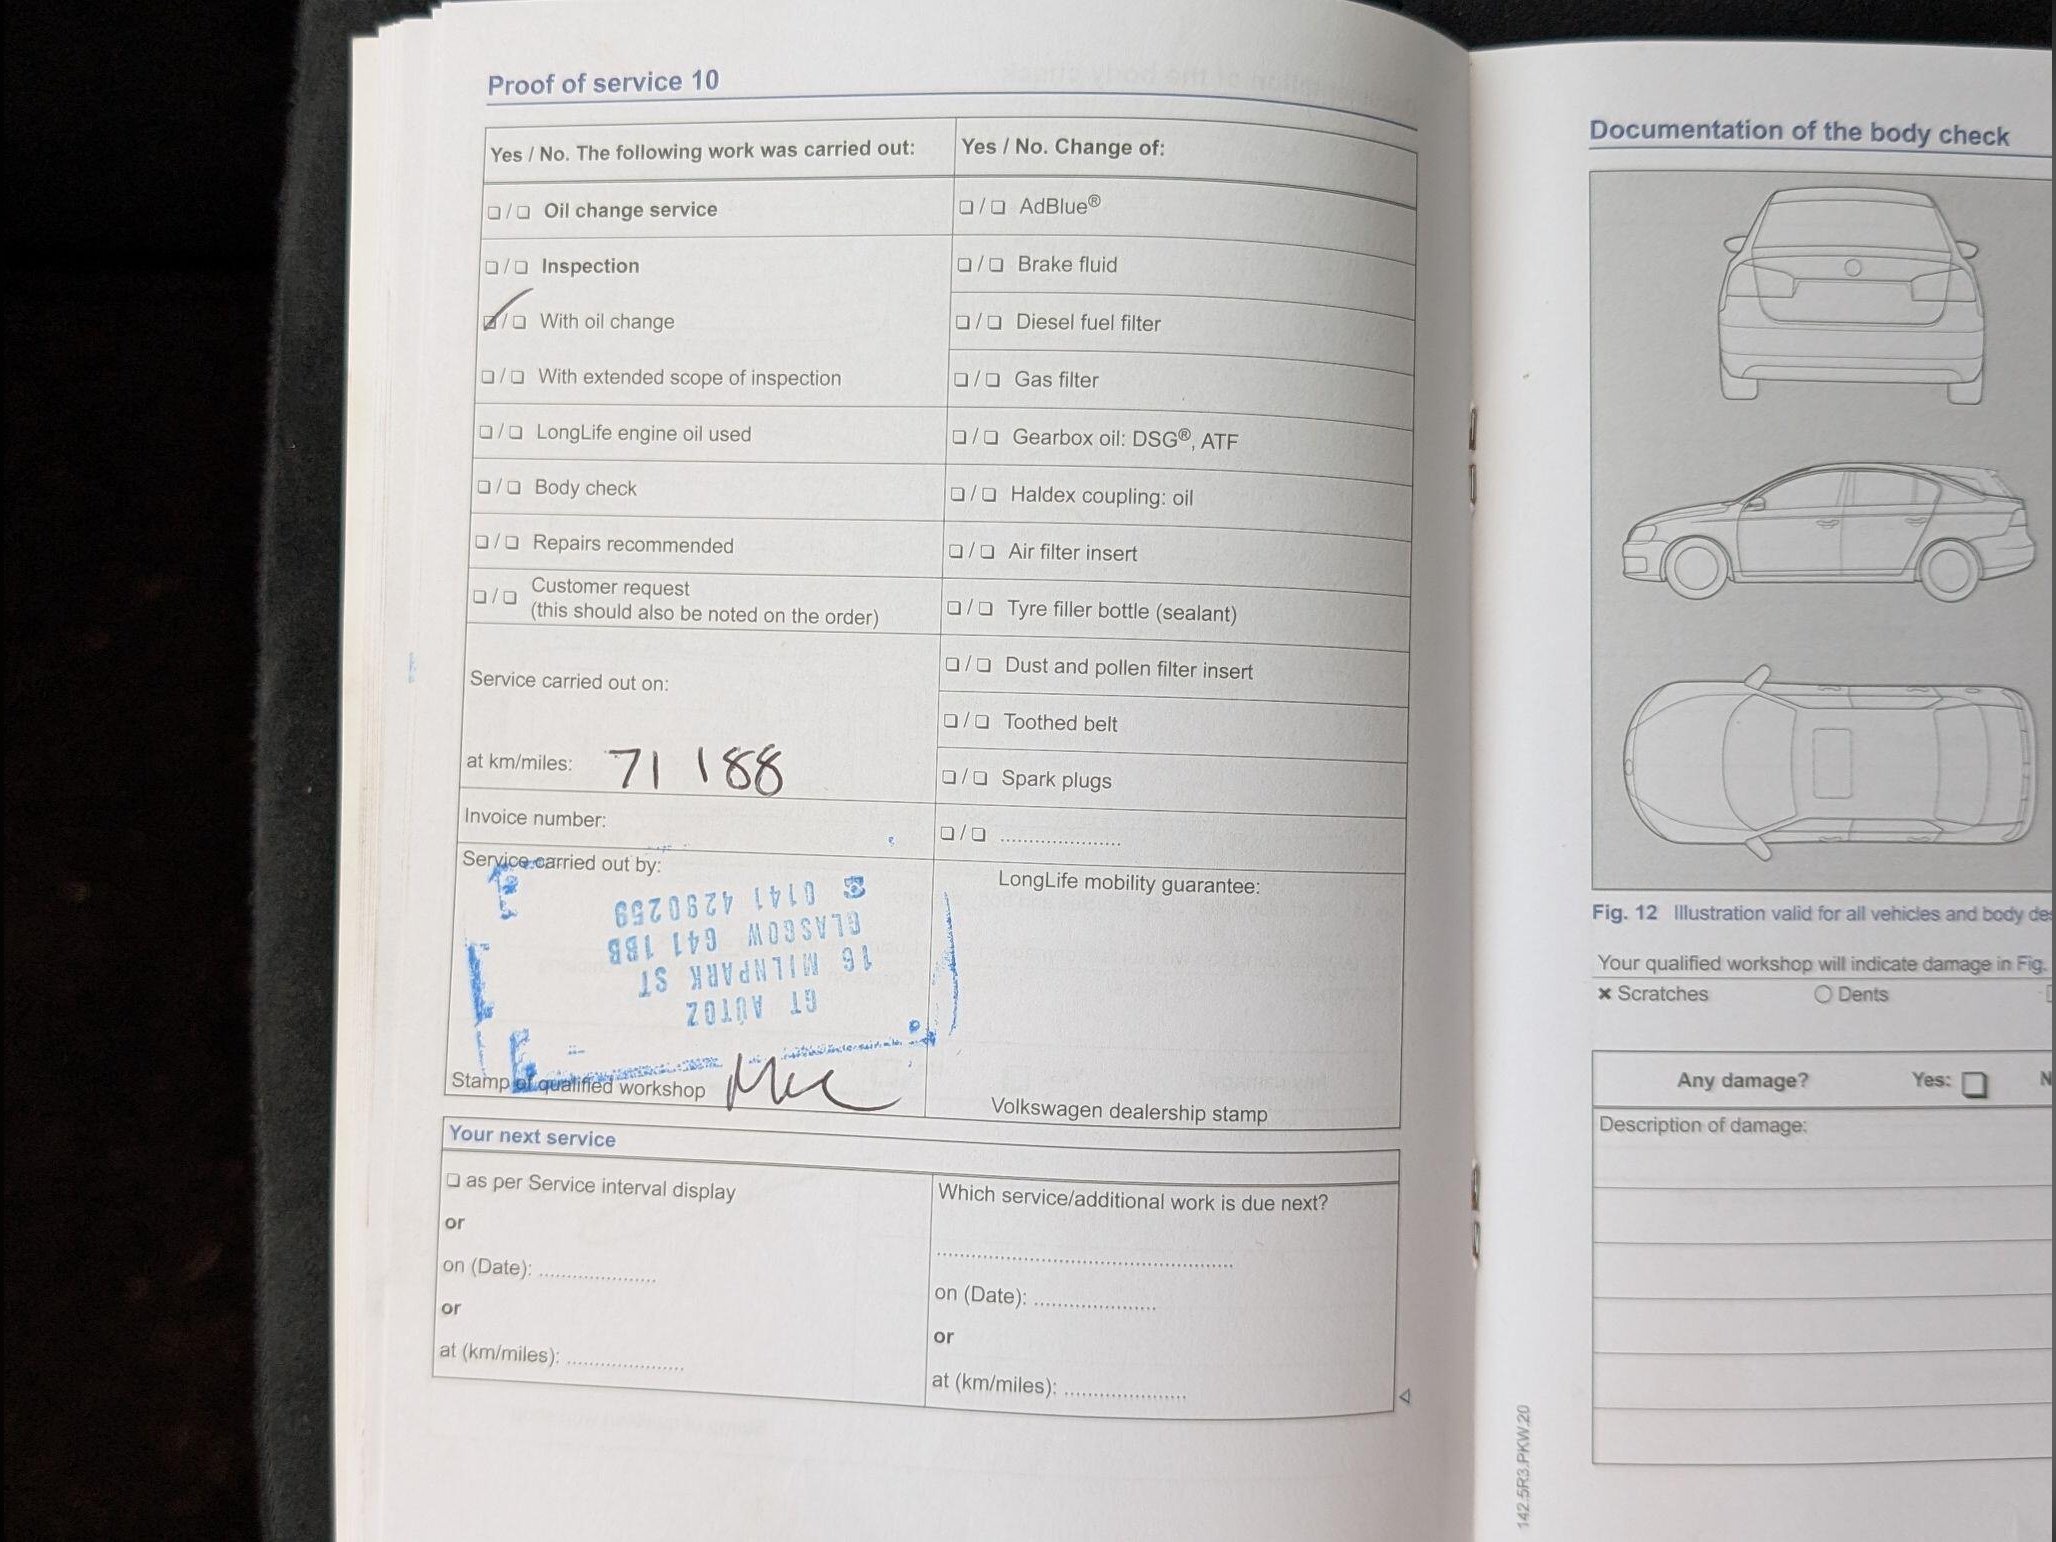 Proof of service 10
Yes / No. The following work was carried out:
❏ / ❏ Oil change service
❏ / ❏ Inspection
❏ / ❏ With oil change
❏ / ❏ With extended scope of inspection
❏ / ❏ LongLife engine oil used
❏ / ❏ Body check
❏ / ❏ Repairs recommended
❏ / ❏ Customer request
(this should also be noted on the order)
Service carried out on:
at km/miles: 71 188
Invoice number:
Service carried out by:
GT AUTOZ
16 MILNPARK ST
GLASGOW G41 1BB
☎ 0141 4290259
Stamp of qualified workshop
Yes / No. Change of:
❏ / ❏ AdBlue®
❏ / ❏ Brake fluid
❏ / ❏ Diesel fuel filter
❏ / ❏ Gas filter
❏ / ❏ Gearbox oil: DSG®, ATF
❏ / ❏ Haldex coupling: oil
❏ / ❏ Air filter insert
❏ / ❏ Tyre filler bottle (sealant)
❏ / ❏ Dust and pollen filter insert
❏ / ❏ Toothed belt
❏ / ❏ Spark plugs
❏ / ❏ ......................
LongLife mobility guarantee:
Volkswagen dealership stamp
Your next service
❏ as per Service interval display
or
on (Date): ......................
or
at (km/miles): ......................
Which service/additional work is due next?
......................................................
on (Date): ......................
or
at (km/miles): ......................
Documentation of the body check
Fig. 12 Illustration valid for all vehicles and body
Your qualified workshop will indicate damage in Fig.
× Scratches
○ Dents
Any damage? Yes: ❏
Description of damage:
142.5R3.PKW.20